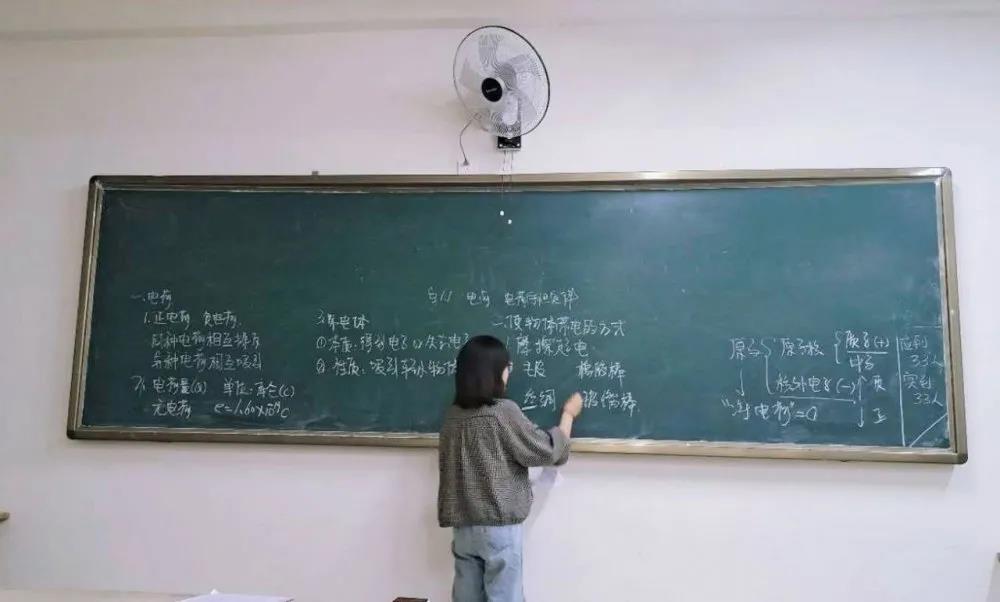 §1.1 电荷 电荷守恒定律
一.电荷
1.正电荷 负电荷.
同种电荷相互排斥
异种电荷相互吸引
2.电荷量(Q) 单位:库仑(C)
元电荷 e=1.60×10⁻¹⁹C
3.带电体
①本质:得到电子or失去电子
②性质:吸引轻小物体
二.使物体带电的方式
1.摩擦起电
毛皮 橡胶棒
丝绸 玻璃棒
原子 原子核 质子(+)
中子
核外电子(-)
"净电荷"=0
负
正
应到
33人
实到
33人